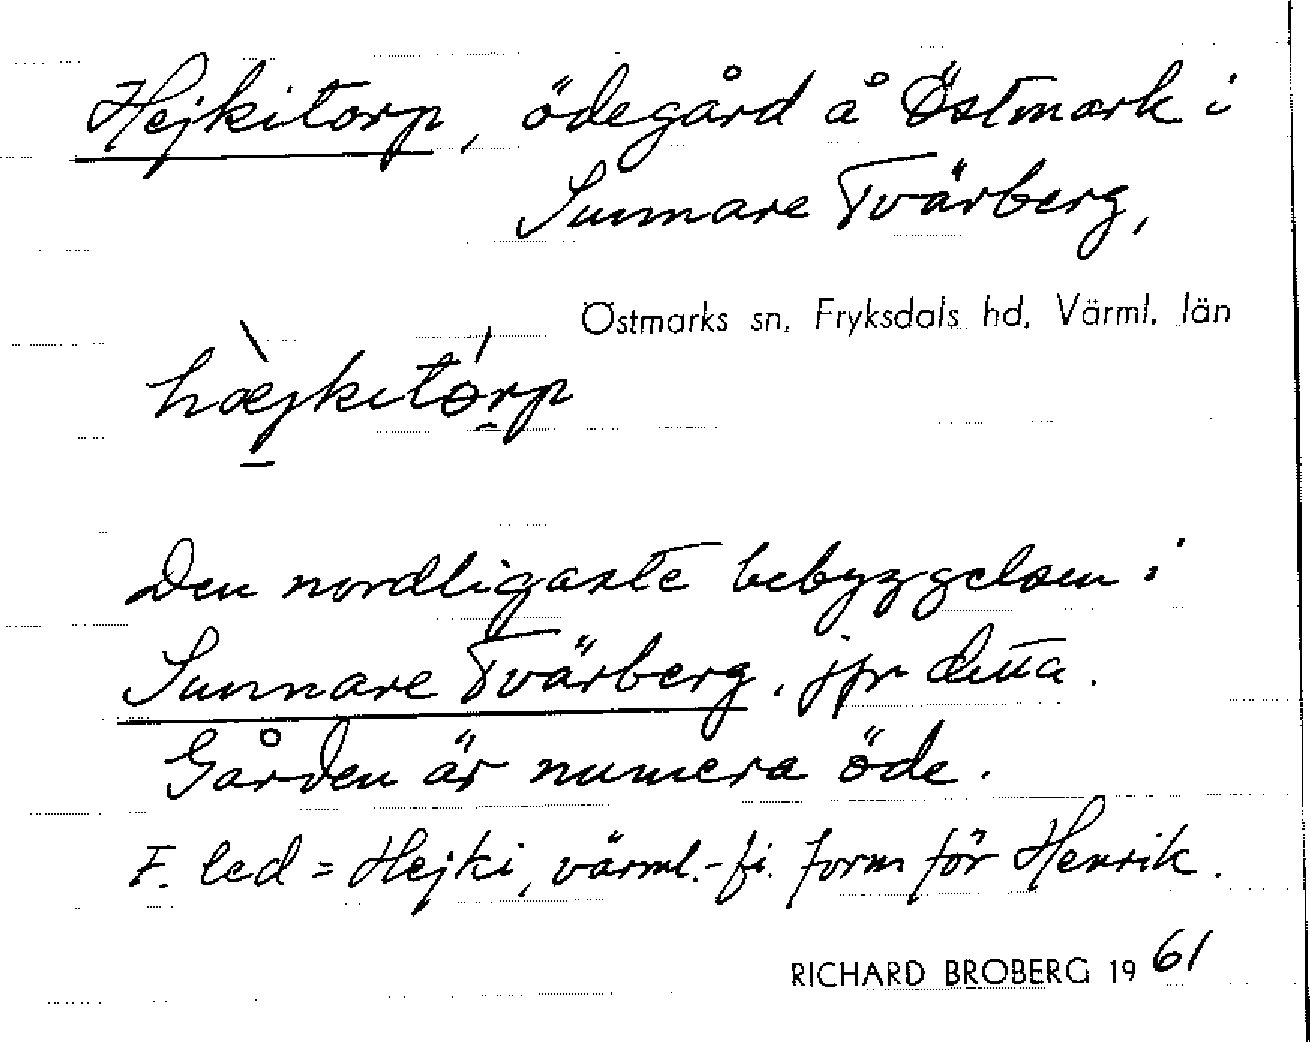 Hejkitorp, ödegård å Östmark i
Sunnare Tvärberg,
Östmarks sn, Fryksdals hd, Värml. län
hæ̀jkitórp
Den nordligaste bebyggelsen i
Sunnare Tvärberg, jfr detta.
Gården är numera öde.
F. led = Hejki, värml.-fi. form för Henrik.
RICHARD BROBERG 1961